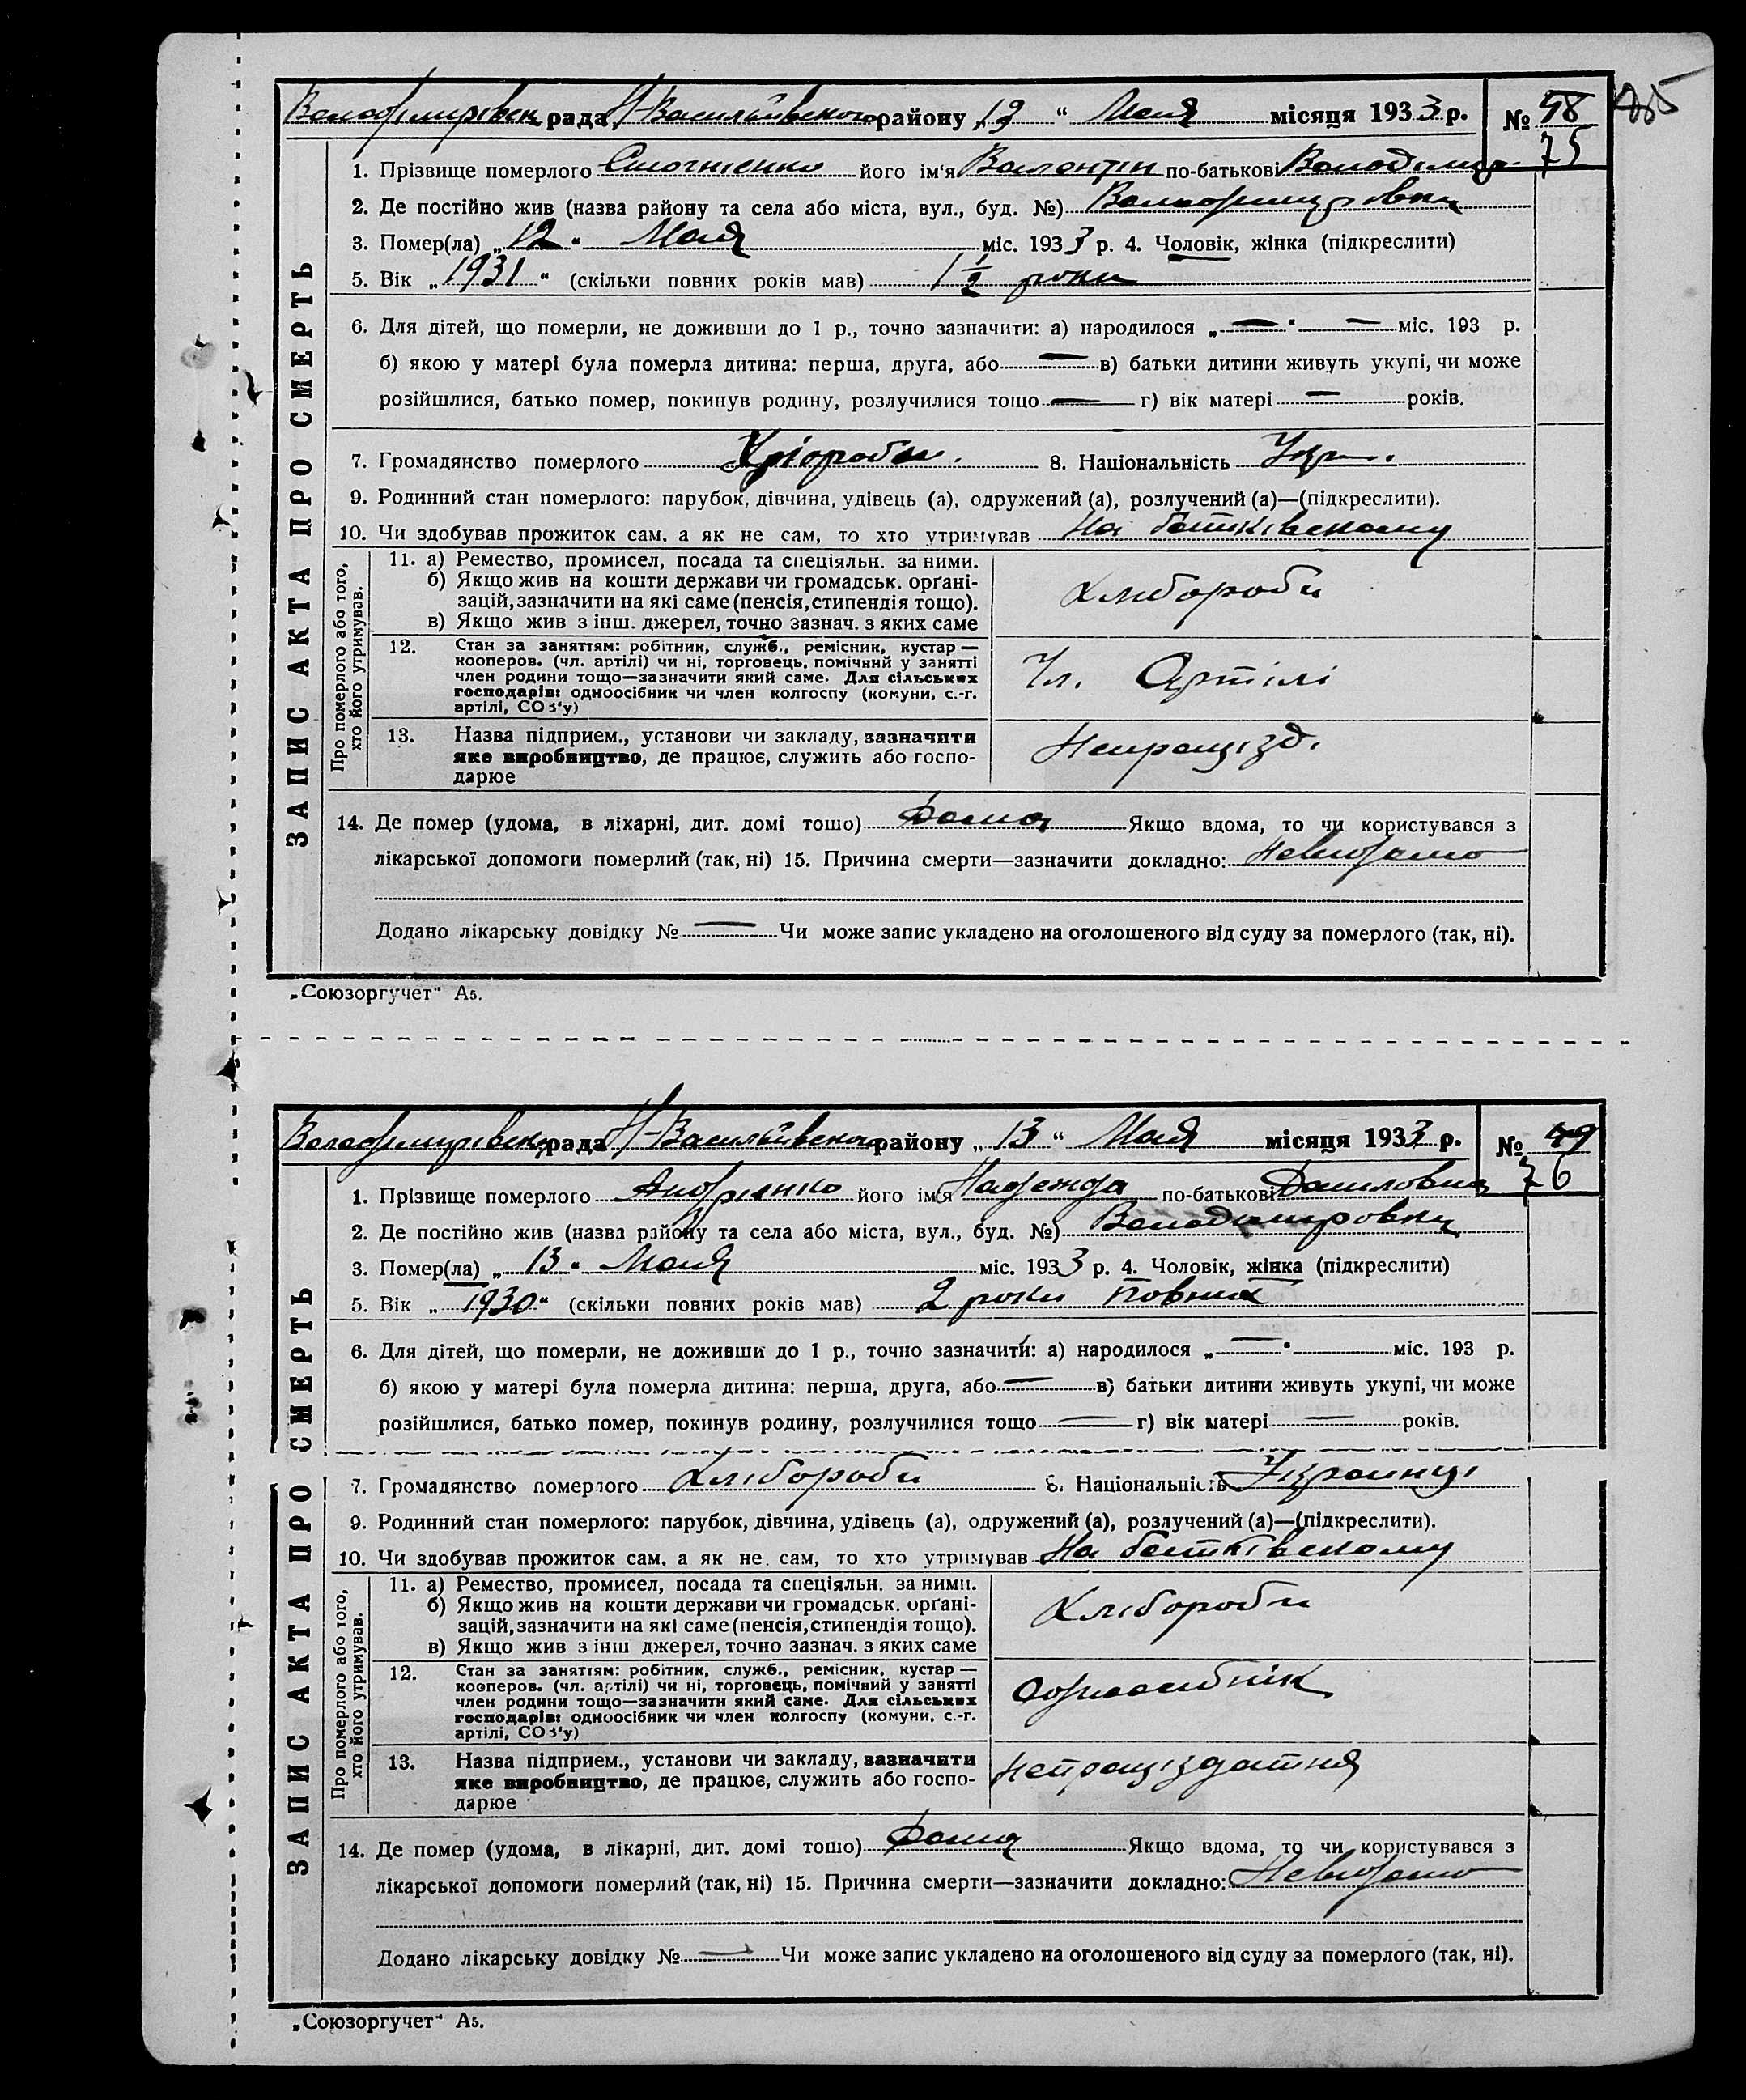 Володимирівськ рада Н-Васильївського району „13“ Мая місяця 1933 р. № 48
85
75
1. Прізвище померлого його ім'я Валентін по-батькові Володимир
2. Де постійно жив (назва району та села або міста, вул., буд. №) Володимировки
3. Помер(ла) „12“ Мая міс. 1933 р. 4. Чоловік, жінка (підкреслити)
5. Вік „1931“ (скільки повних років мав) 1 1/2 роки
6. Для дітей, що померли, не доживши до 1 р., точно зазначити: а) народилося „—“ — міс. 193 р.
б) якою у матері була померла дитина: перша, друга, або — в) батьки дитини живуть укупі, чи може
розійшлися, батько помер, покинув родину, розлучилися тощо — г) вік матері — років.
7. Громадянство померлого 8. Національність Укр.
9. Родинний стан померлого: парубок, дівчина, удівець (а), одружений (а), розлучений (а)—(підкреслити).
10. Чи здобував прожиток сам, а як не сам, то хто утримував На батьківскому
ЗАПИС АКТА ПРО СМЕРТЬ
Про померлого або того,
хто його утримував.
11. а) Ремество, промисел, посада та спеціяльн. за ними.
б) Якщо жив на кошти держави чи громадськ. орґані-
зацій, зазначити на які саме (пенсія, стипендія тощо).
в) Якщо жив з інш. джерел, точно зазнач. з яких саме
Хлібороби
12. Стан за заняттям: робітник, служб., ремісник, кустар —
кооперов. (чл. артілі) чи ні, торговець, помічний у занятті
член родини тощо—зазначити який саме. Для сільських
господарів: одноосібник чи член колгоспу (комуни, с.-г.
артілі, СОЗ'у)
Чл. Артілі
13. Назва підприєм., установи чи закладу, зазначити
яке виробництво, де працює, служить або госпо-
дарює
Непрацезд.
14. Де помер (удома, в лікарні, дит. домі тощо) Дома Якщо вдома, то чи користувався з
лікарської допомоги померлий (так, ні) 15. Причина смерти—зазначити докладно: Невидомо
Додано лікарську довідку № — Чи може запис укладено на оголошеного від суду за померлого (так, ні).
„Союзоргучет“ А5.
Володимирівсько рада Н-Васильївського району „13“ Мая місяця 1933 р. № 49
76
1. Прізвище померлого Андрієнко його ім'я Надежда по-батькові Даниловна
2. Де постійно жив (назва району та села або міста, вул., буд. №) Володимировки
3. Помер(ла) „13“ Мая міс. 1933 р. 4. Чоловік, жінка (підкреслити)
5. Вік „1930“ (скільки повних років мав) 2 роки повних
6. Для дітей, що померли, не доживши до 1 р., точно зазначити: а) народилося „—“ — міс. 193 р.
б) якою у матері була померла дитина: перша, друга, або — в) батьки дитини живуть укупі, чи може
розійшлися, батько помер, покинув родину, розлучилися тощо — г) вік матері — років.
7. Громадянство померлого Хлібороби 8. Національність Українці
9. Родинний стан померлого: парубок, дівчина, удівець (а), одружений (а), розлучений (а)—(підкреслити).
10. Чи здобував прожиток сам, а як не сам, то хто утримував На батьківскому
ЗАПИС АКТА ПРО СМЕРТЬ
Про померлого або того,
хто його утримував.
11. а) Ремество, промисел, посада та спеціяльн. за ними.
б) Якщо жив на кошти держави чи громадськ. орґані-
зацій, зазначити на які саме (пенсія, стипендія тощо).
в) Якщо жив з інш джерел, точно зазнач. з яких саме
Хлібороби
12. Стан за заняттям: робітник, служб., ремісник, кустар —
кооперов. (чл. артілі) чи ні, торговець, помічний у занятті
член родини тощо—зазначити який саме. Для сільських
господарів: одноосібник чи член колгоспу (комуни, с.-г.
артілі, СОЗ'у)
Одноосібнік
13. Назва підприєм., установи чи закладу, зазначити
яке виробництво, де працює, служить або госпо-
дарює
Непрацездатня
14. Де помер (удома, в лікарні, дит. домі тощо) Дома Якщо вдома, то чи користувався з
лікарської допомоги померлий (так, ні) 15. Причина смерти—зазначити докладно: Невидомо
Додано лікарську довідку № — Чи може запис укладено на оголошеного від суду за померлого (так, ні).
„Союзоргучет“ А5.